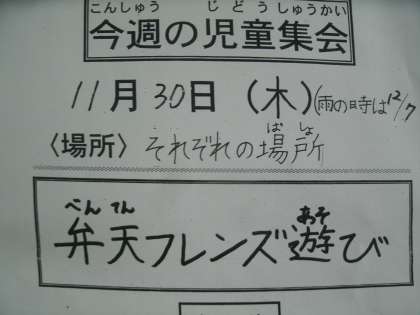 こんしゅう じどうしゅうかい
今週の児童集会
11月30日(木)(雨の時は12/7
ばしょ
〈場所〉それぞれの場所
べんてん あそ
弁天フレンズ遊び